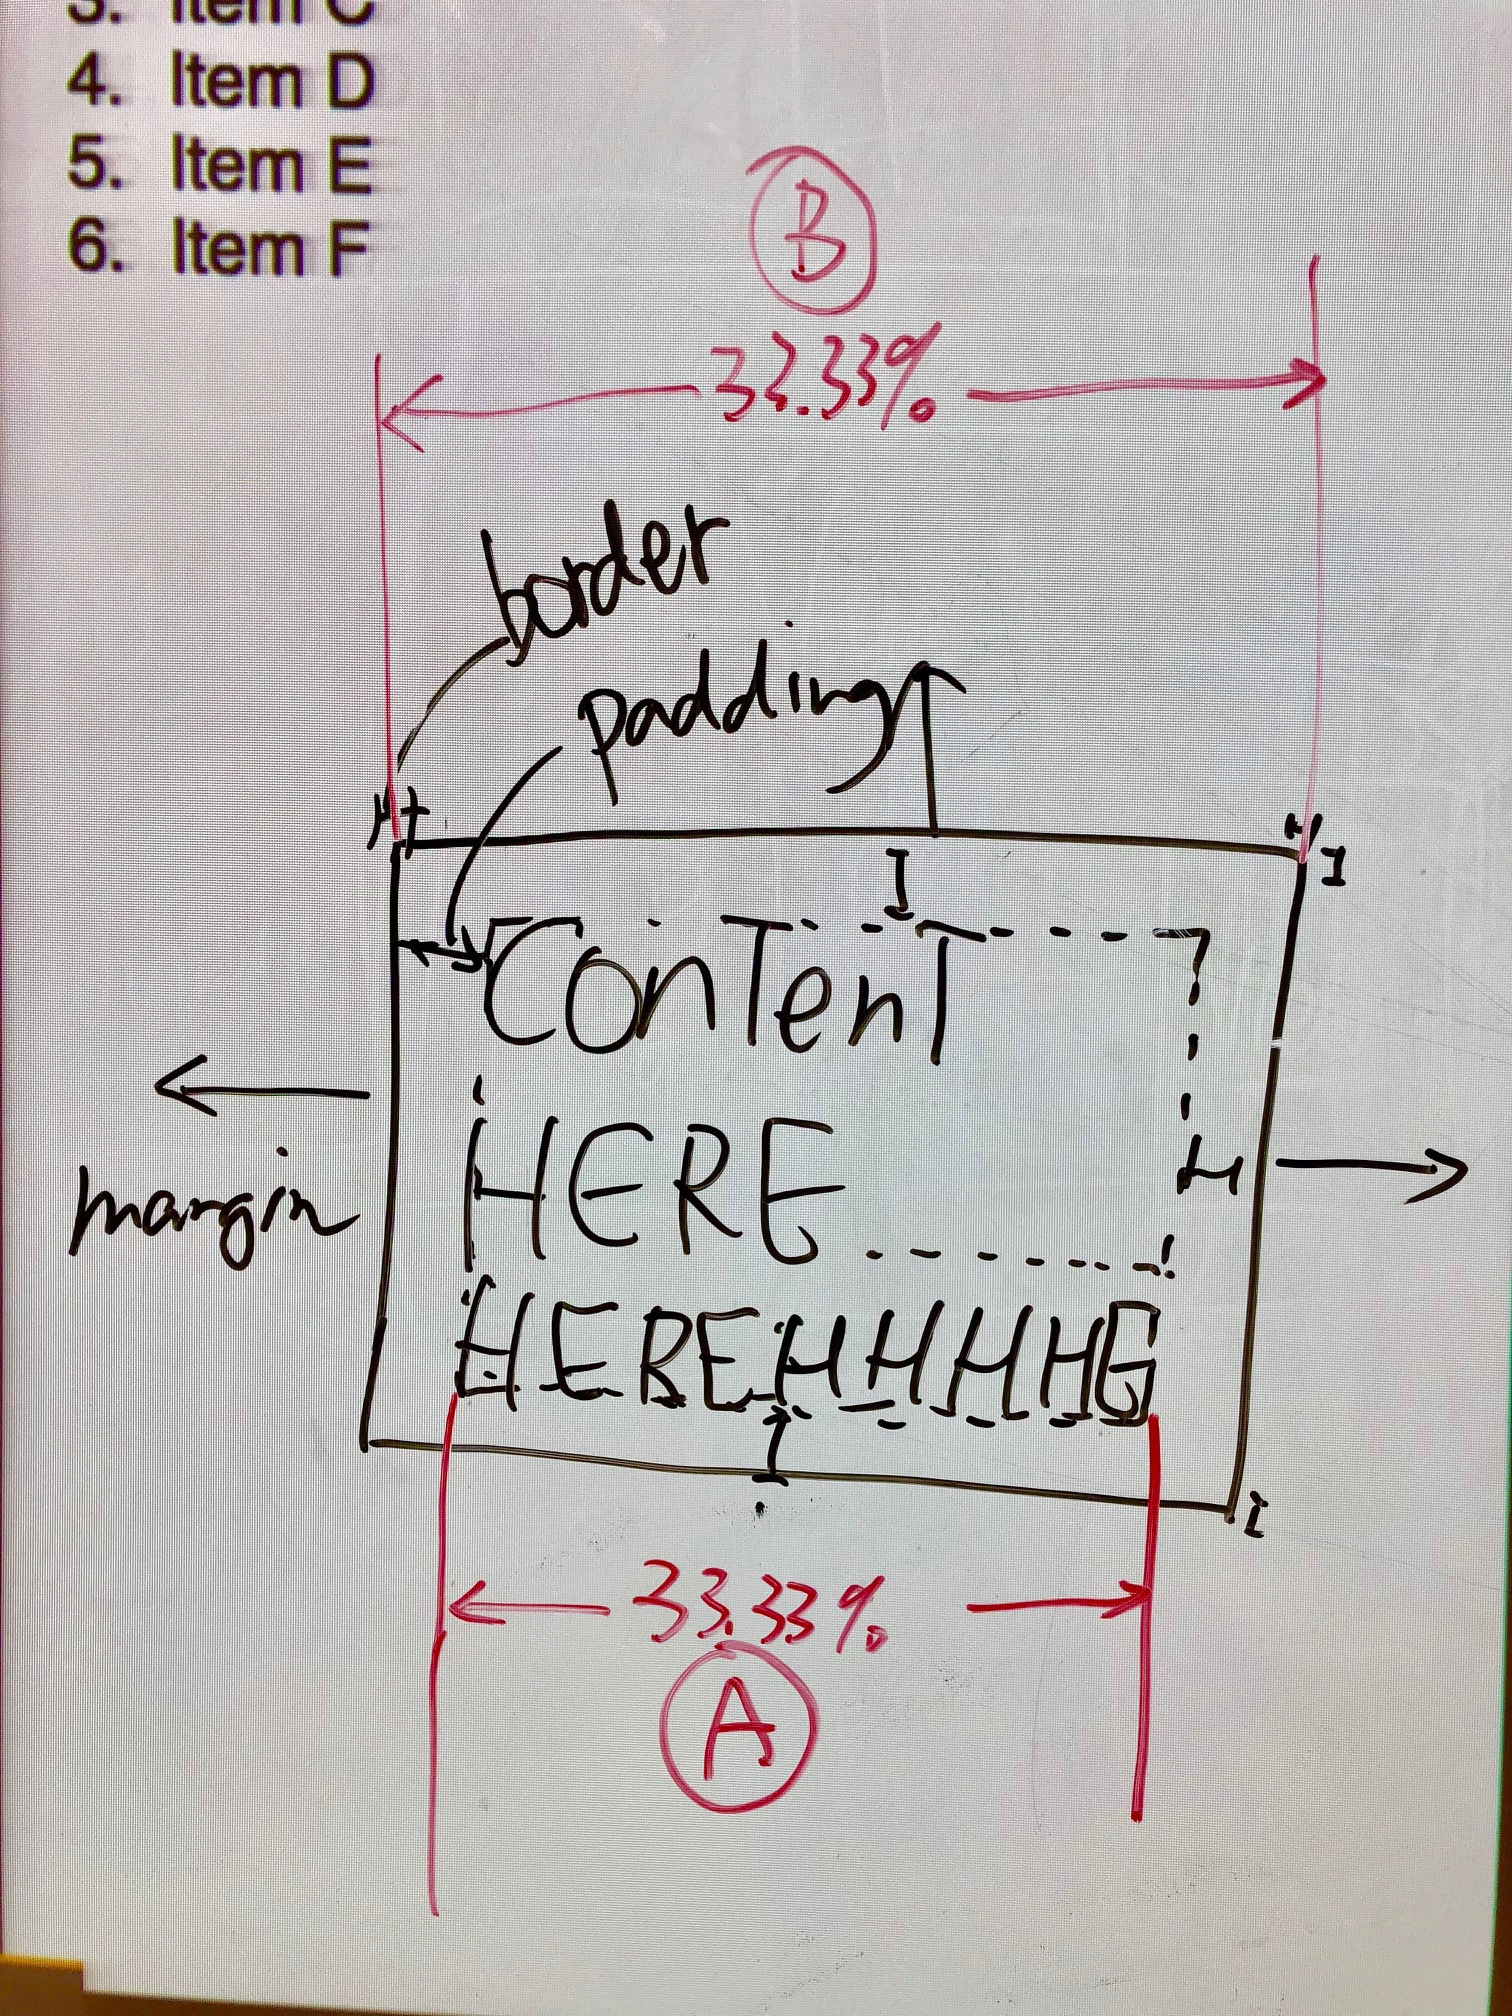 3. Item C
4. Item D
5. Item E
6. Item F
B
33.33%
border
padding
ConTenT
HERE
margin
HEREHHHHG
33.33%
A